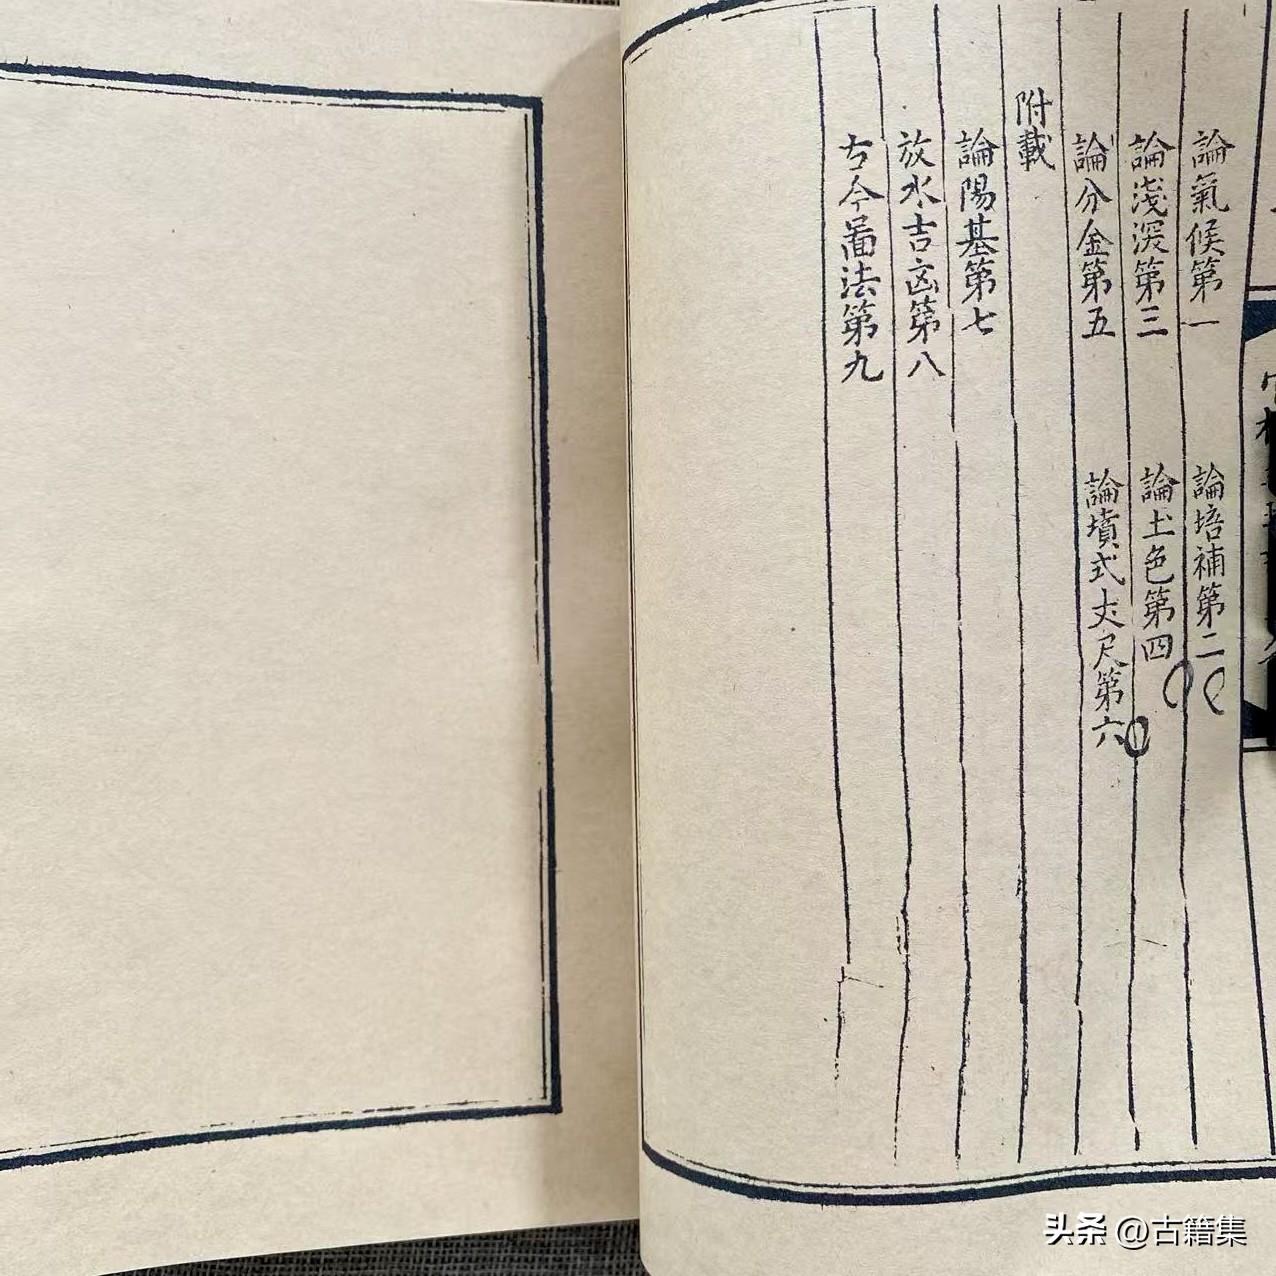 論氣候第一
論培補第二
論淺深第三
論土色第四
論分金第五
論墳式丈尺第六
附載
論陽基第七
放水吉凶第八
古今啚法第九
头条 @古籍集